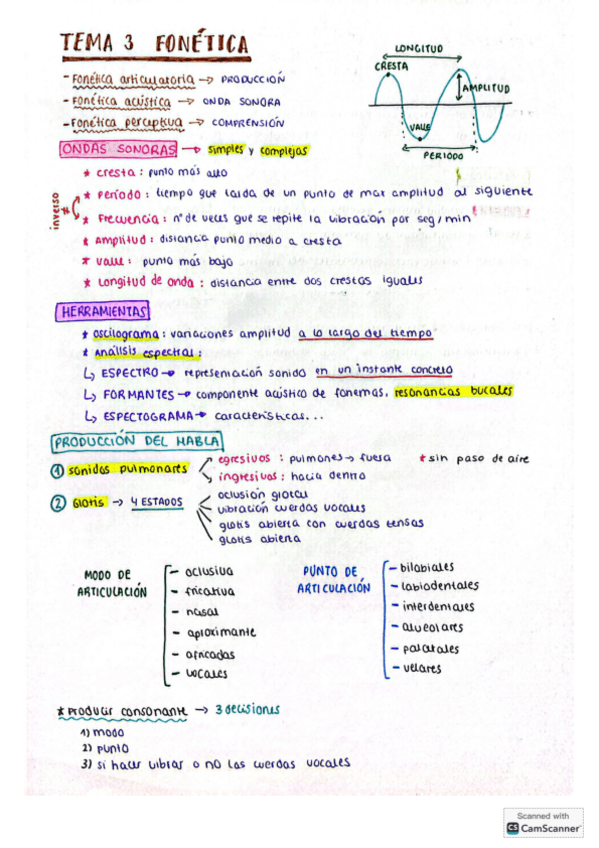 TEMA 3 FONÉTICA
- Fonética articulatoria → PRODUCCIÓN
- Fonética acústica → ONDA SONORA
- Fonética perceptiva → COMPRENSIÓN
LONGITUD
CRESTA
AMPLITUD
VALLE
PERIODO
ONDAS SONORAS → simples y complejas
* cresta: punto más alto
inverso
* Período: tiempo que tarda de un punto de max amplitud al siguiente
* Frecuencia: nº de veces que se repite la vibración por seg/min
* Amplitud: distancia punto medio a cresta
* Valle: punto más bajo
* Longitud de onda: distancia entre dos crestas iguales
HERRAMIENTAS
* oscilograma: variaciones amplitud a lo largo del tiempo
* Análisis espectral:
↳ ESPECTRO → representación sonido en un instante concreto
↳ FORMANTES → componente acústico de fonemas, resonancias bucales
↳ ESPECTOGRAMA → características...
PRODUCCIÓN DEL HABLA
① sonidos pulmonares
egresivos: pulmones → fuera * sin paso de aire
ingresivos: hacia dentro
② Glotis → 4 ESTADOS
oclusion glotal
vibración cuerdas vocales
glotis abierta con cuerdas tensas
glotis abierta
MODO DE ARTICULACIÓN
- oclusiva
- fricativa
- nasal
- aproximante
- africadas
- vocales
PUNTO DE ARTICULACIÓN
- bilabiales
- labiodentales
- interdentales
- alveolares
- palatales
- velares
* Producir consonante → 3 decisiones
1) modo
2) punto
3) si hacer vibrar o no las cuerdas vocales
Scanned with
CS CamScanner